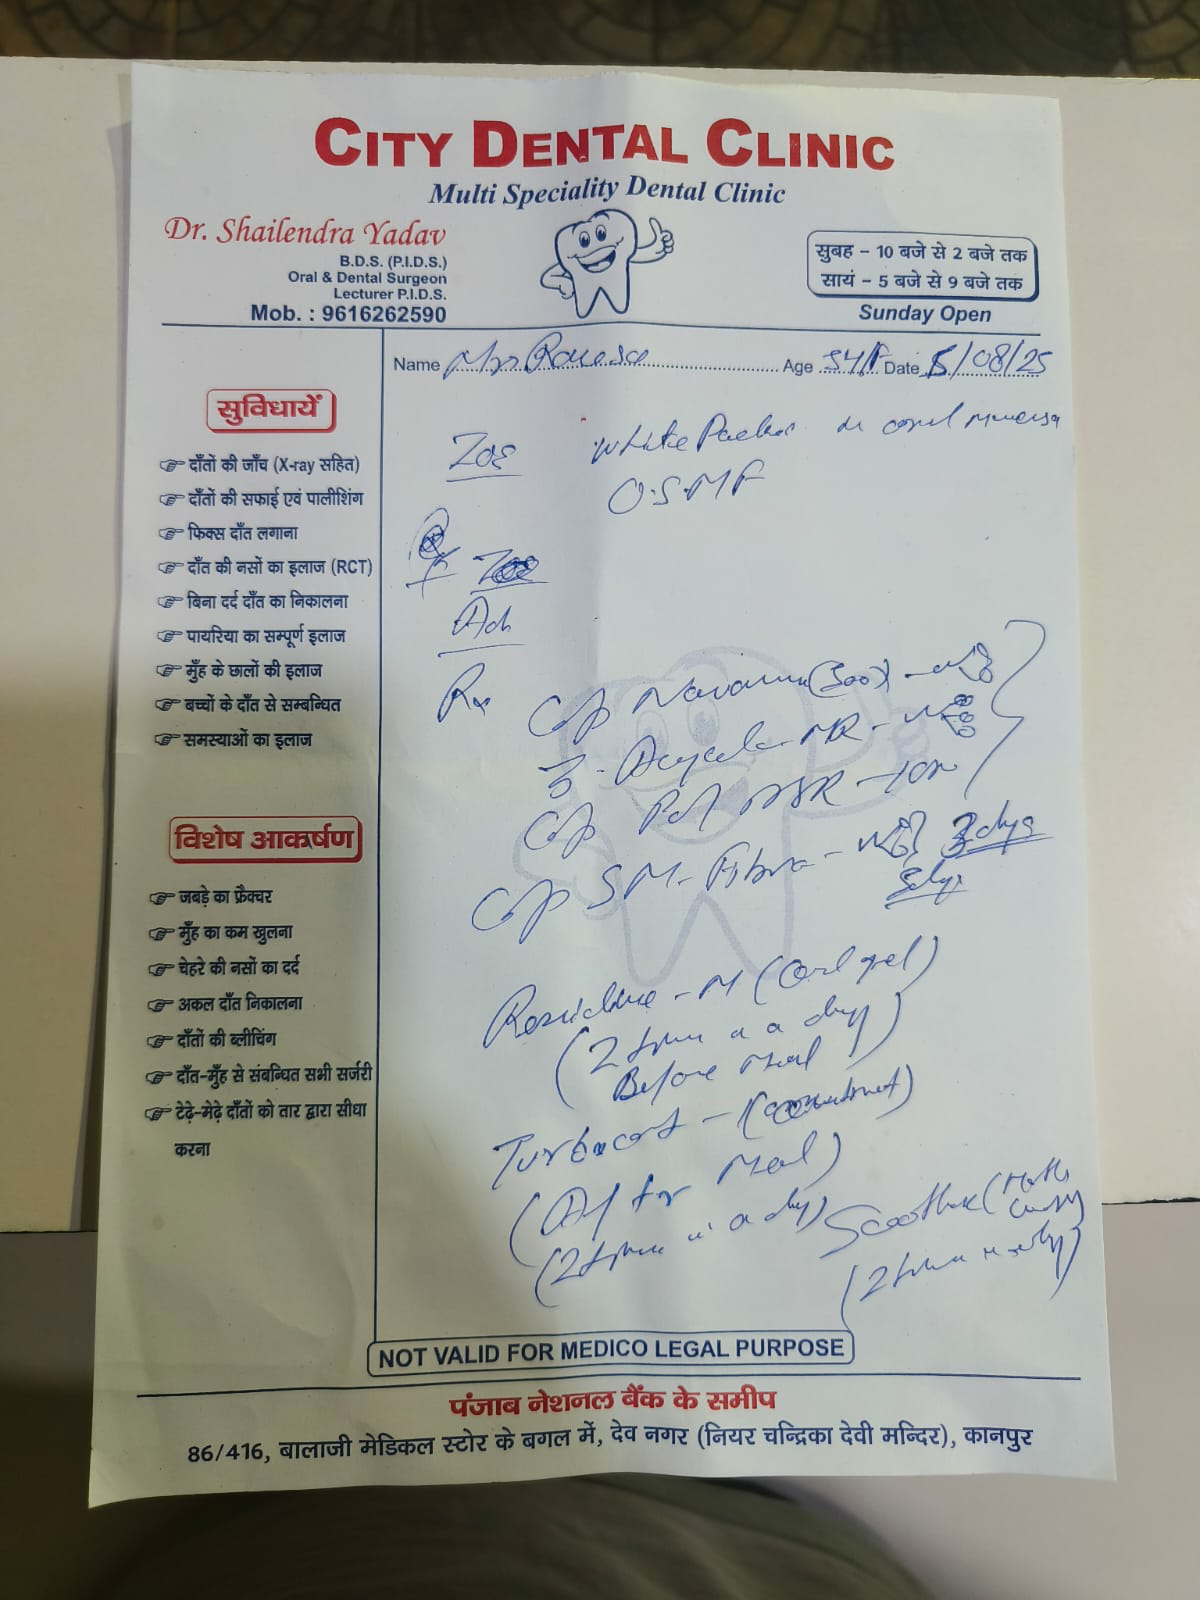 CITY DENTAL CLINIC
Multi Speciality Dental Clinic
Dr. Shailendra Yadav
B.D.S. (P.I.D.S.)
Oral & Dental Surgeon
Lecturer P.I.D.S.
Mob. : 9616262590
सुबह – 10 बजे से 2 बजे तक
सायं – 5 बजे से 9 बजे तक
Sunday Open
Name Mrs Age 34/F Date 5/08/25
सुविधायें
दाँतों की जाँच (X-ray सहित)
दाँतों की सफाई एवं पालीशिंग
फिक्स दाँत लगाना
दाँत की नसों का इलाज (RCT)
बिना दर्द दाँत का निकालना
पायरिया का सम्पूर्ण इलाज
मुँह के छालों की इलाज
बच्चों के दाँत से सम्बन्धित
समस्याओं का इलाज
विशेष आकर्षण
जबड़े का फ्रैक्चर
मुँह का कम खुलना
चेहरे की नसों का दर्द
अकल दाँत निकालना
दाँतों की ब्लीचिंग
दाँत-मुँह से संबन्धित सभी सर्जरी
टेढ़े-मेढ़े दाँतों को तार द्वारा सीधा
करना
White
O.S.M.F
Adv
Rx
Cap (300)
MR
Cap
Cap SM-Fibro 3 days
5 days
M (Oral gel)
(2 time in a day)
Before Meal
Turbocort
(After Meal)
(2 time in a day)
(2 time in a day)
NOT VALID FOR MEDICO LEGAL PURPOSE
पंजाब नेशनल बैंक के समीप
86/416, बालाजी मेडिकल स्टोर के बगल में, देव नगर (नियर चन्द्रिका देवी मन्दिर), कानपुर